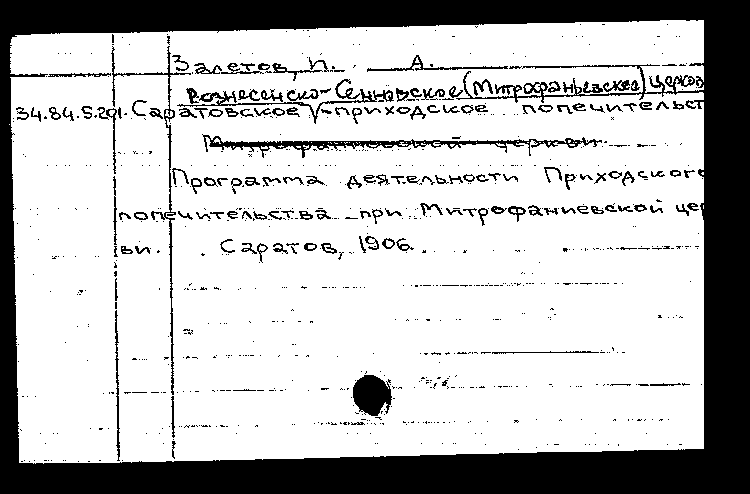 Залетов, И. А.
Вознесенско-Сенновское (Митрофаньевское) церков
34.84.5.201. Саратовское V-приходское попечительст
Митрофаниевской церкви.
Программа деятельности Приходского
попечительства при Митрофаниевской цер
ви. Саратов, 1906.